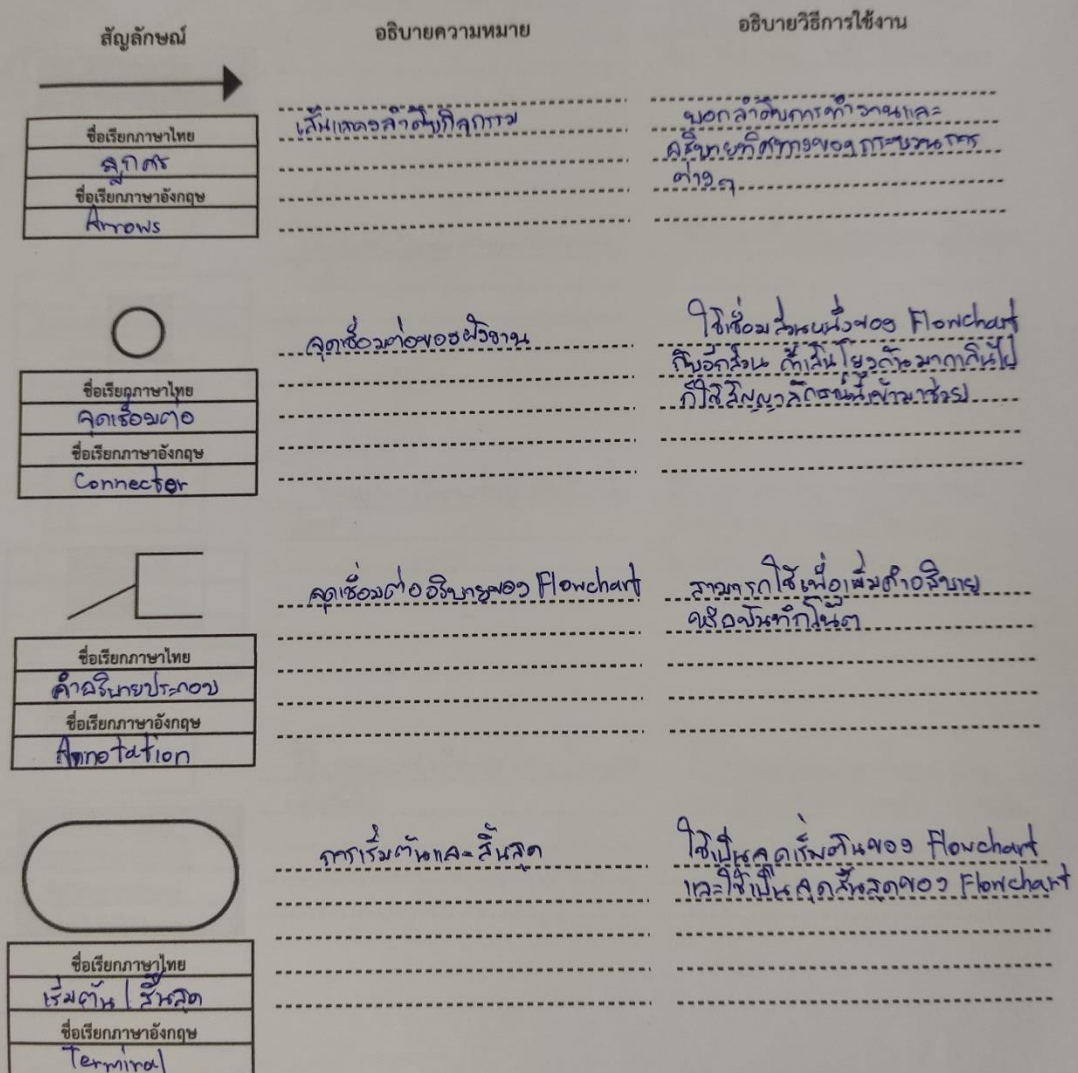 สัญลักษณ์
อธิบายความหมาย
อธิบายวิธีการใช้งาน
ชื่อเรียกภาษาไทย
ลูกศร
ชื่อเรียกภาษาอังกฤษ
Arrows
เส้นแสดงลำดับกิจกรรม
บอกลำดับการทำงานและ
อธิบายทิศทางของกระบวนการ
ต่างๆ
ชื่อเรียกภาษาไทย
จุดเชื่อมต่อ
ชื่อเรียกภาษาอังกฤษ
Connector
จุดเชื่อมต่อของผังงาน
ใช้เชื่อมส่วนหนึ่งของ Flowchart
กับอีกส่วน ถ้าเส้นโยงกันมากเกินไป
ก็ใช้สัญญาลักษณ์นี้เข้ามาช่วย
ชื่อเรียกภาษาไทย
คำอธิบายประกอบ
ชื่อเรียกภาษาอังกฤษ
Annotation
จุดเชื่อมต่ออธิบายของ Flowchart
สามารถใช้เพื่อเพิ่มคำอธิบาย
หรือบันทึกโน๊ต
ชื่อเรียกภาษาไทย
เริ่มต้น / สิ้นสุด
ชื่อเรียกภาษาอังกฤษ
Terminal
การเริ่มต้นและสิ้นสุด
ใช้เป็นจุดเริ่มต้นของ Flowchart
และใช้เป็นจุดสิ้นสุดของ Flowchart